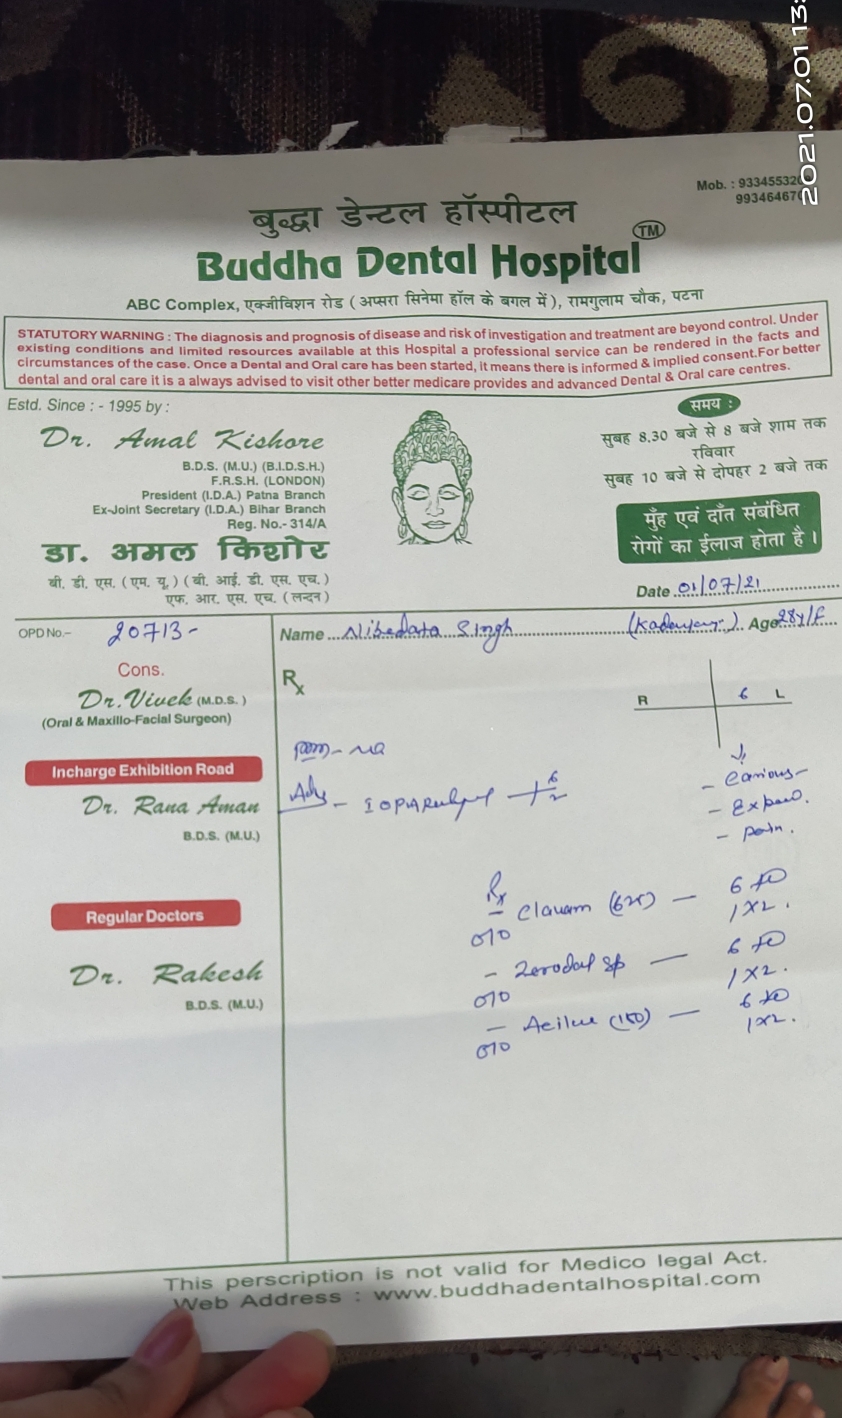 2021.07.01 13:
Mob. : 9334553
993464670
बुद्धा डेन्टल हॉस्पीटल
Buddha Dental Hospital TM
ABC Complex, एक्जीविशन रोड ( अप्सरा सिनेमा हॉल के बगल में ), रामगुलाम चौक, पटना
STATUTORY WARNING : The diagnosis and prognosis of disease and risk of investigation and treatment are beyond control. Under
existing conditions and limited resources available at this Hospital a professional service can be rendered in the facts and
circumstances of the case. Once a Dental and Oral care has been started, it means there is informed & implied consent.For better
dental and oral care it is a always advised to visit other better medicare provides and advanced Dental & Oral care centres.
Estd. Since : - 1995 by :
Dr. Amal Kishore
B.D.S. (M.U.) (B.I.D.S.H.)
F.R.S.H. (LONDON)
President (I.D.A.) Patna Branch
Ex-Joint Secretary (I.D.A.) Bihar Branch
Reg. No.- 314/A
डा. अमल किशोर
बी. डी. एस. ( एम. यू. ) ( बी. आई. डी. एस. एच. )
एफ. आर. एस. एच. ( लन्दन )
समय :
सुबह 8.30 बजे से 8 बजे शाम तक
रविवार
सुबह 10 बजे से दोपहर 2 बजे तक
मुँह एवं दाँत संबंधित
रोगों का ईलाज होता है ।
Date 01/07/21
OPD No.- 20713-
Name Nibedata Singh Age 28y/F
Cons.
Dr. Vivek (M.D.S. )
(Oral & Maxillo-Facial Surgeon)
Incharge Exhibition Road
Dr. Rana Aman
B.D.S. (M.U.)
Regular Doctors
Dr. Rakesh
B.D.S. (M.U.)
Rx
R 6 L
- Carious-
- pain.
Adv - IOPA
Rx
- Clavam (625) — 6
1x2.
- Zerodol sp — 6
1x2.
(150) — 6
1x2.
This perscription is not valid for Medico legal Act.
Web Address : www.buddhadentalhospital.com